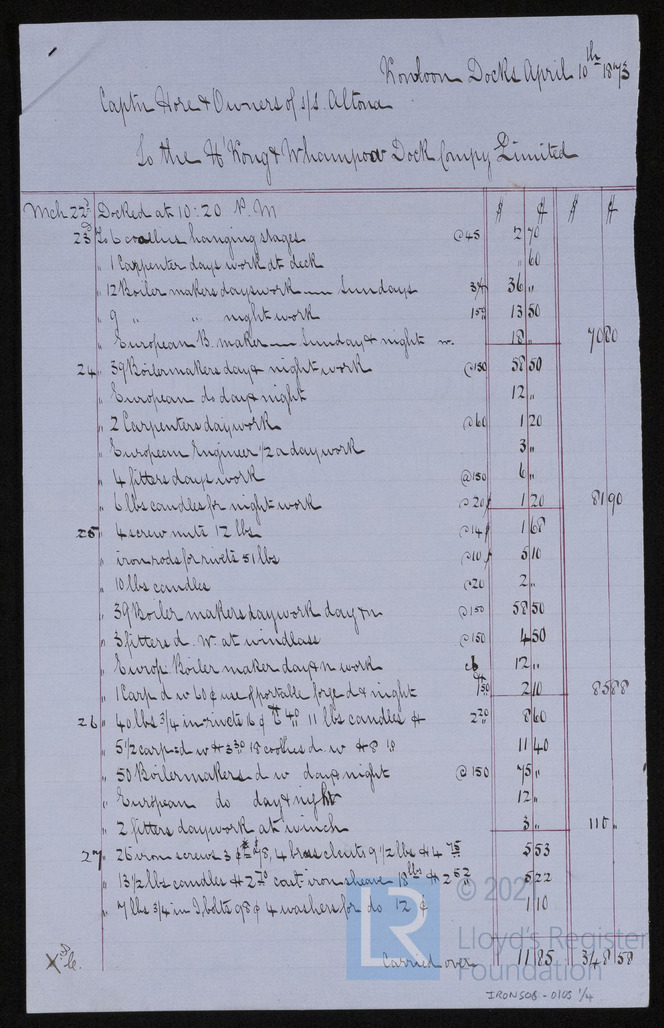 Kowloon Docks April 10th 1873
Captn Hore & Owners of s/s. Altona
To the H'Kong & Whampoa Dock Compy Limited
$ ¢ $ ¢
Mch 22d Docked at 10.20 P.M
23d To 6 coolies hanging stages @ 45 2 70
" 1 Carpenter days work at deck " 60
" 12 Boiler makers days work Sundays 36 "
" 9 " " night work 150 13 50
" European B. maker Sunday & night w. 18 " 70 80
24 " 39 Boilermakers day & night work @ 150 58 50
" European do day & night 12 "
" 2 Carpenters day work @ 60 1 20
" European Engineer 1/2 a day work 3 "
" 4 fitters days work @ 150 6 "
" 6 lbs candles for night work @ 20 1 20 81 90
25 " 4 screw nuts 12 lbs @ 14 1 68
" iron rods for rivets 51 lbs @ 10 5 10
" 10 lbs candles @ 20 2 "
" 39 Boiler makers day work day & n @ 150 58 50
" 3 fitters d. w. at windlass @ 150 4 50
" Europ. Boiler maker day & n work 12 "
" 1 Carp d w 60 ¢ use of portable forge d & night 150 2 10 85 88
26 " 40 lbs 3/4 in rivets 16 ¢ 11 lbs candles $ 2 20 8 60
" 5 1/2 carp d w $ 3 30 18 coolies d. w $ 8 10 11 40
" 50 Boilermakers d w day & night @ 150 75 "
" European do day & night 12 "
" 2 fitters day work at winch 3 " 110 "
27 " 26 iron screws 3 ¢ 78, 4 brass cleats 9 1/2 lbs $ 4 75 5 53
" 13 1/2 lbs candles $ 2 70 cast iron sheave 18 lbs $ 2 52 5 22
" 7 lbs 3/4 in bolts 98 ¢ 4 washers for do 12 ¢ 1 10
Carried over 11 85 348 58
IRONSOB-0105 1/4
© 202
LR
Lloyd's Register
Foundation